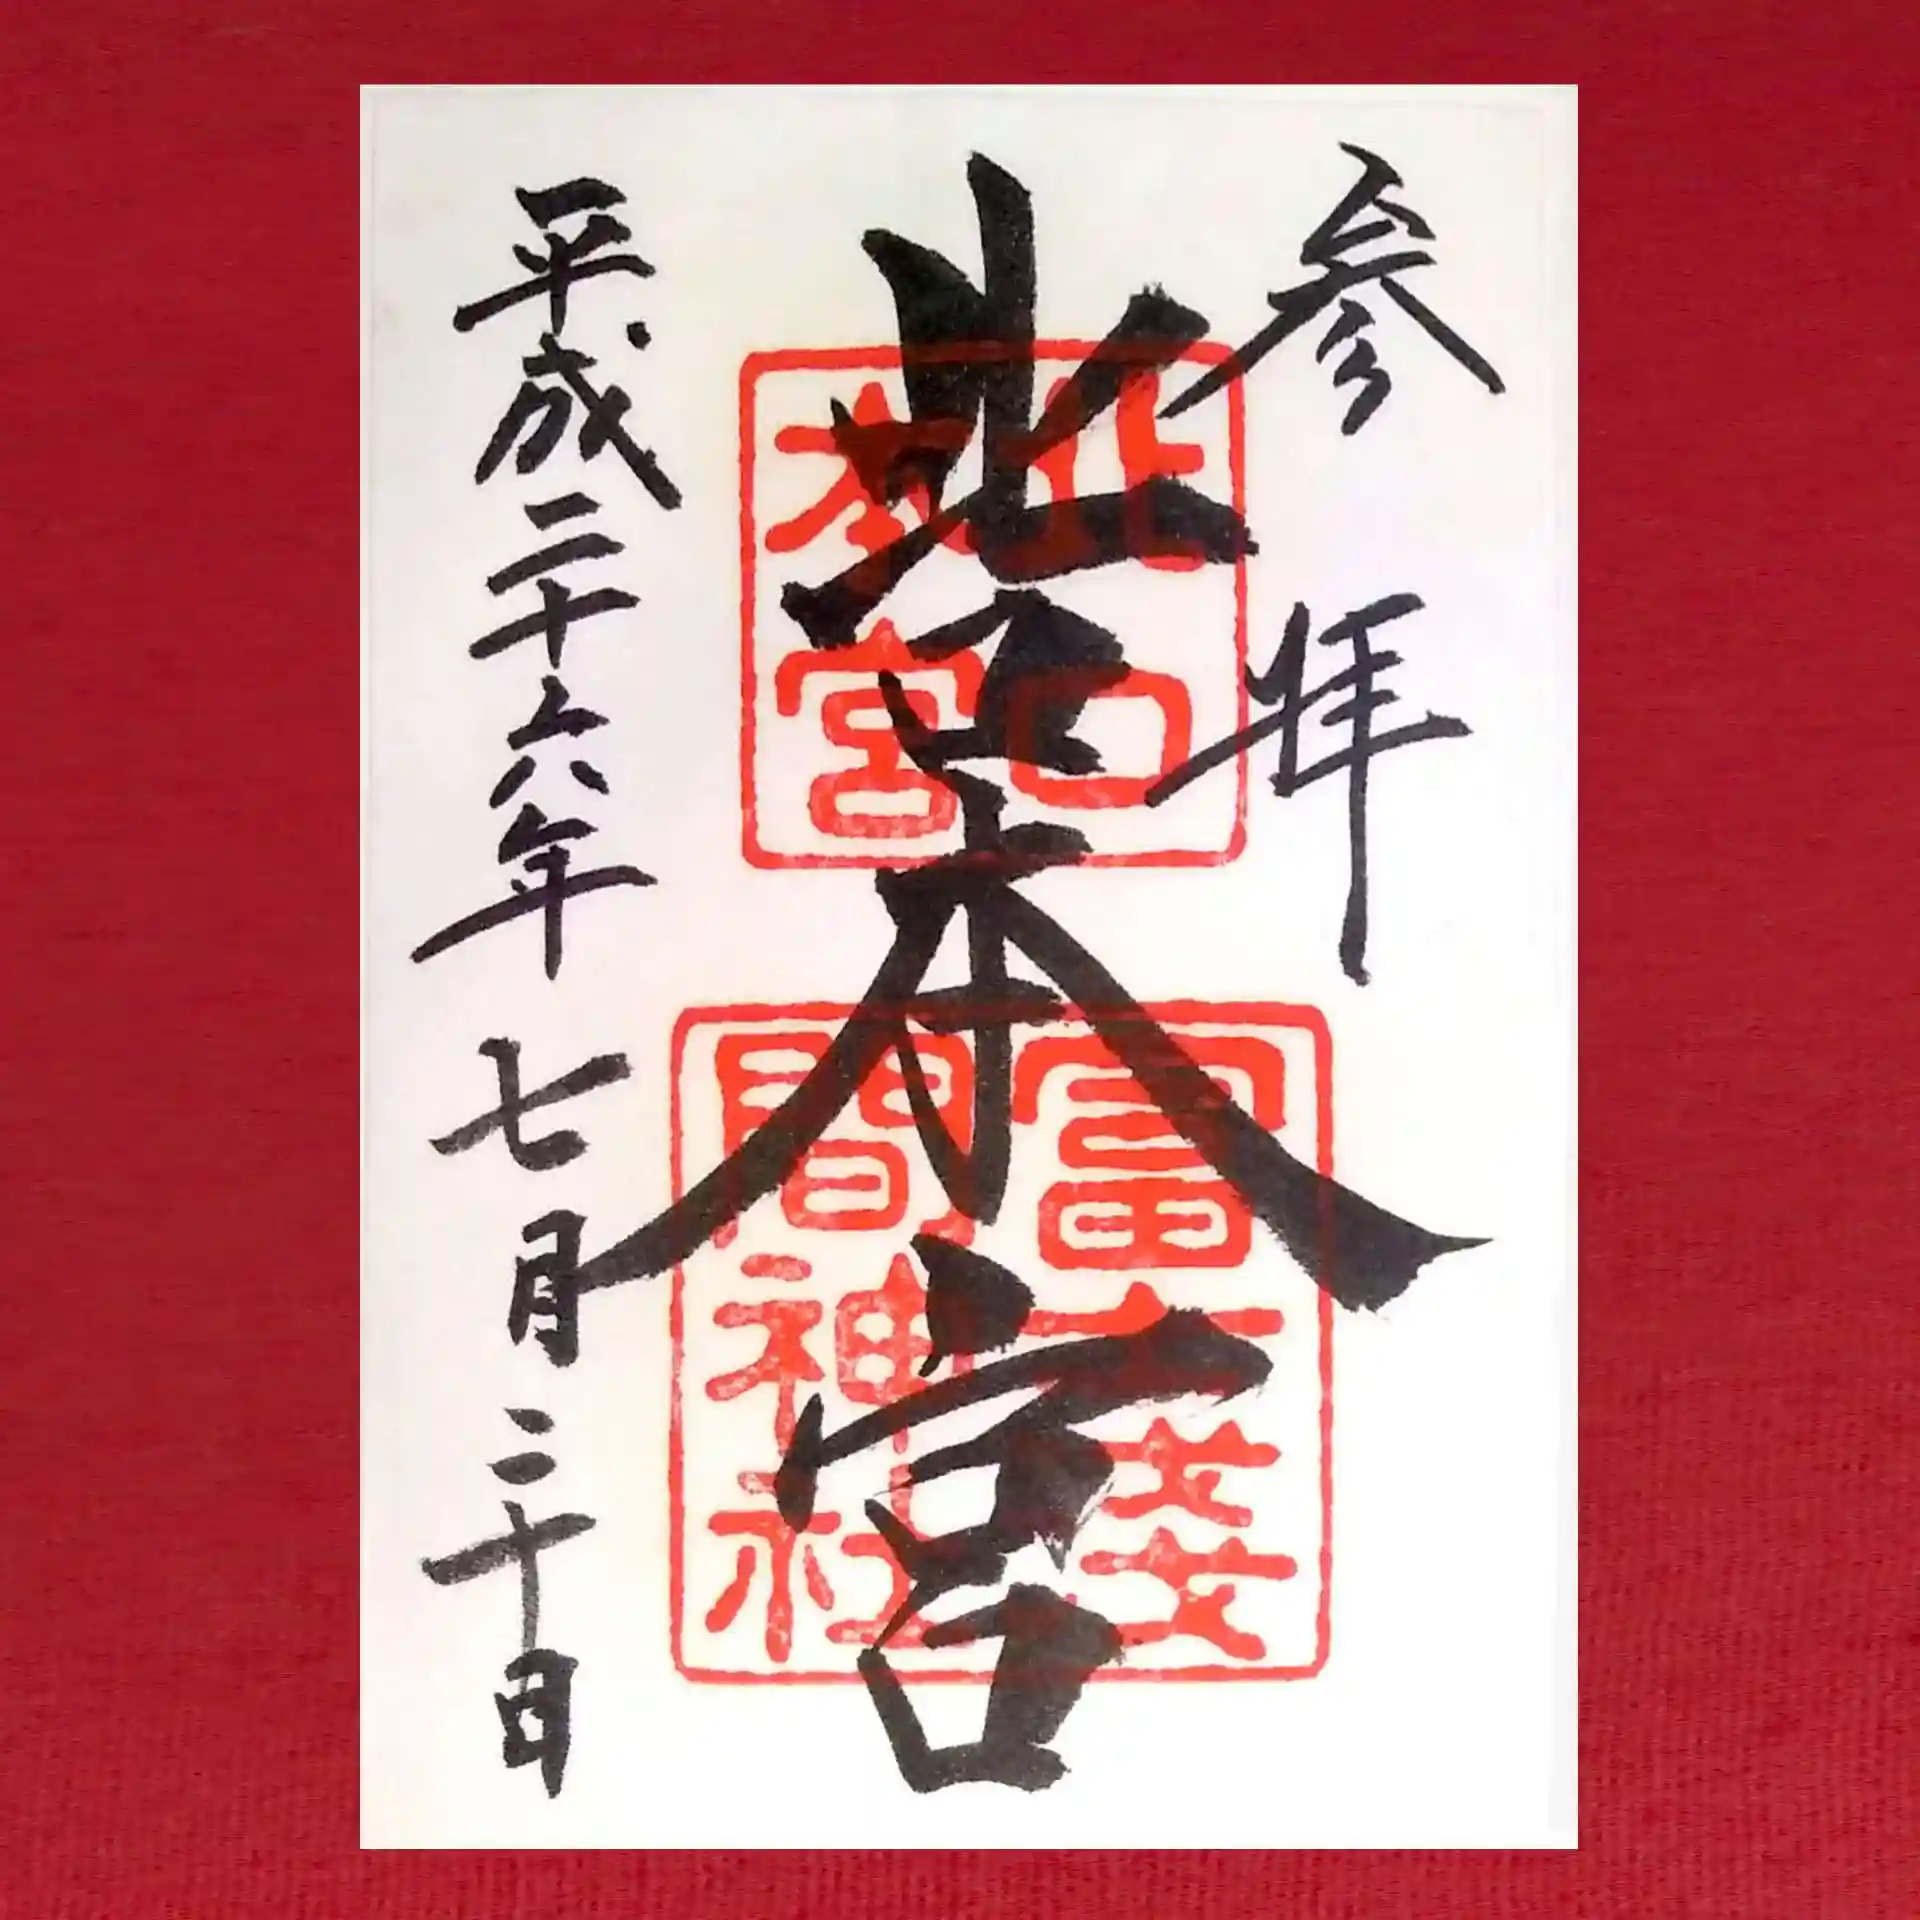 参拝
北口本宮
平成二十六年七月二十日
北口
本宮
冨士淺
間神社